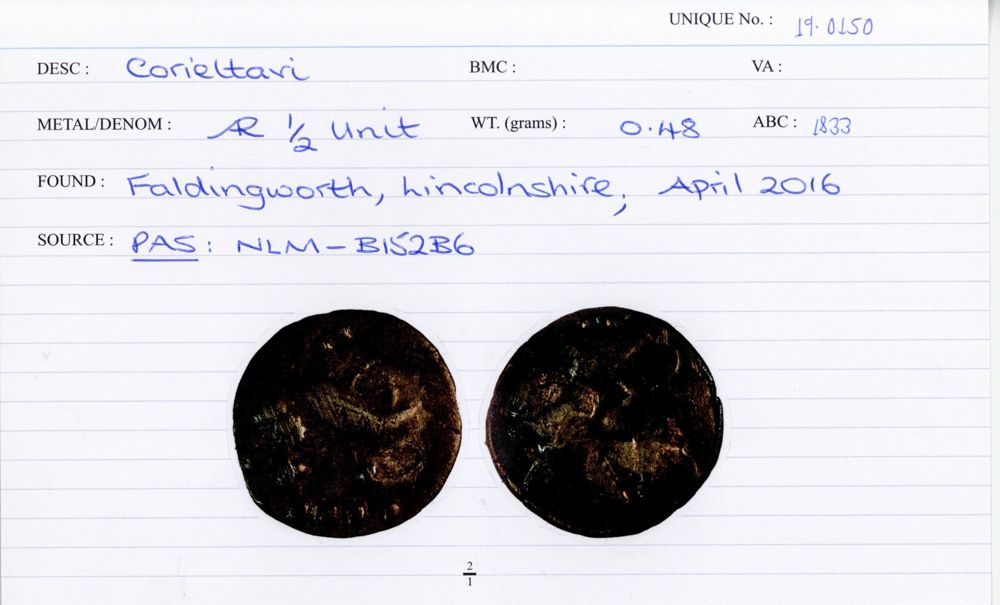 UNIQUE No. : 19.0150
DESC : Corieltavi BMC : VA :
METAL/DENOM : AR 1/2 Unit WT. (grams) : 0.48 ABC : 1833
FOUND : Faldingworth, Lincolnshire, April 2016
SOURCE : PAS : NLM - B152B6
2
1